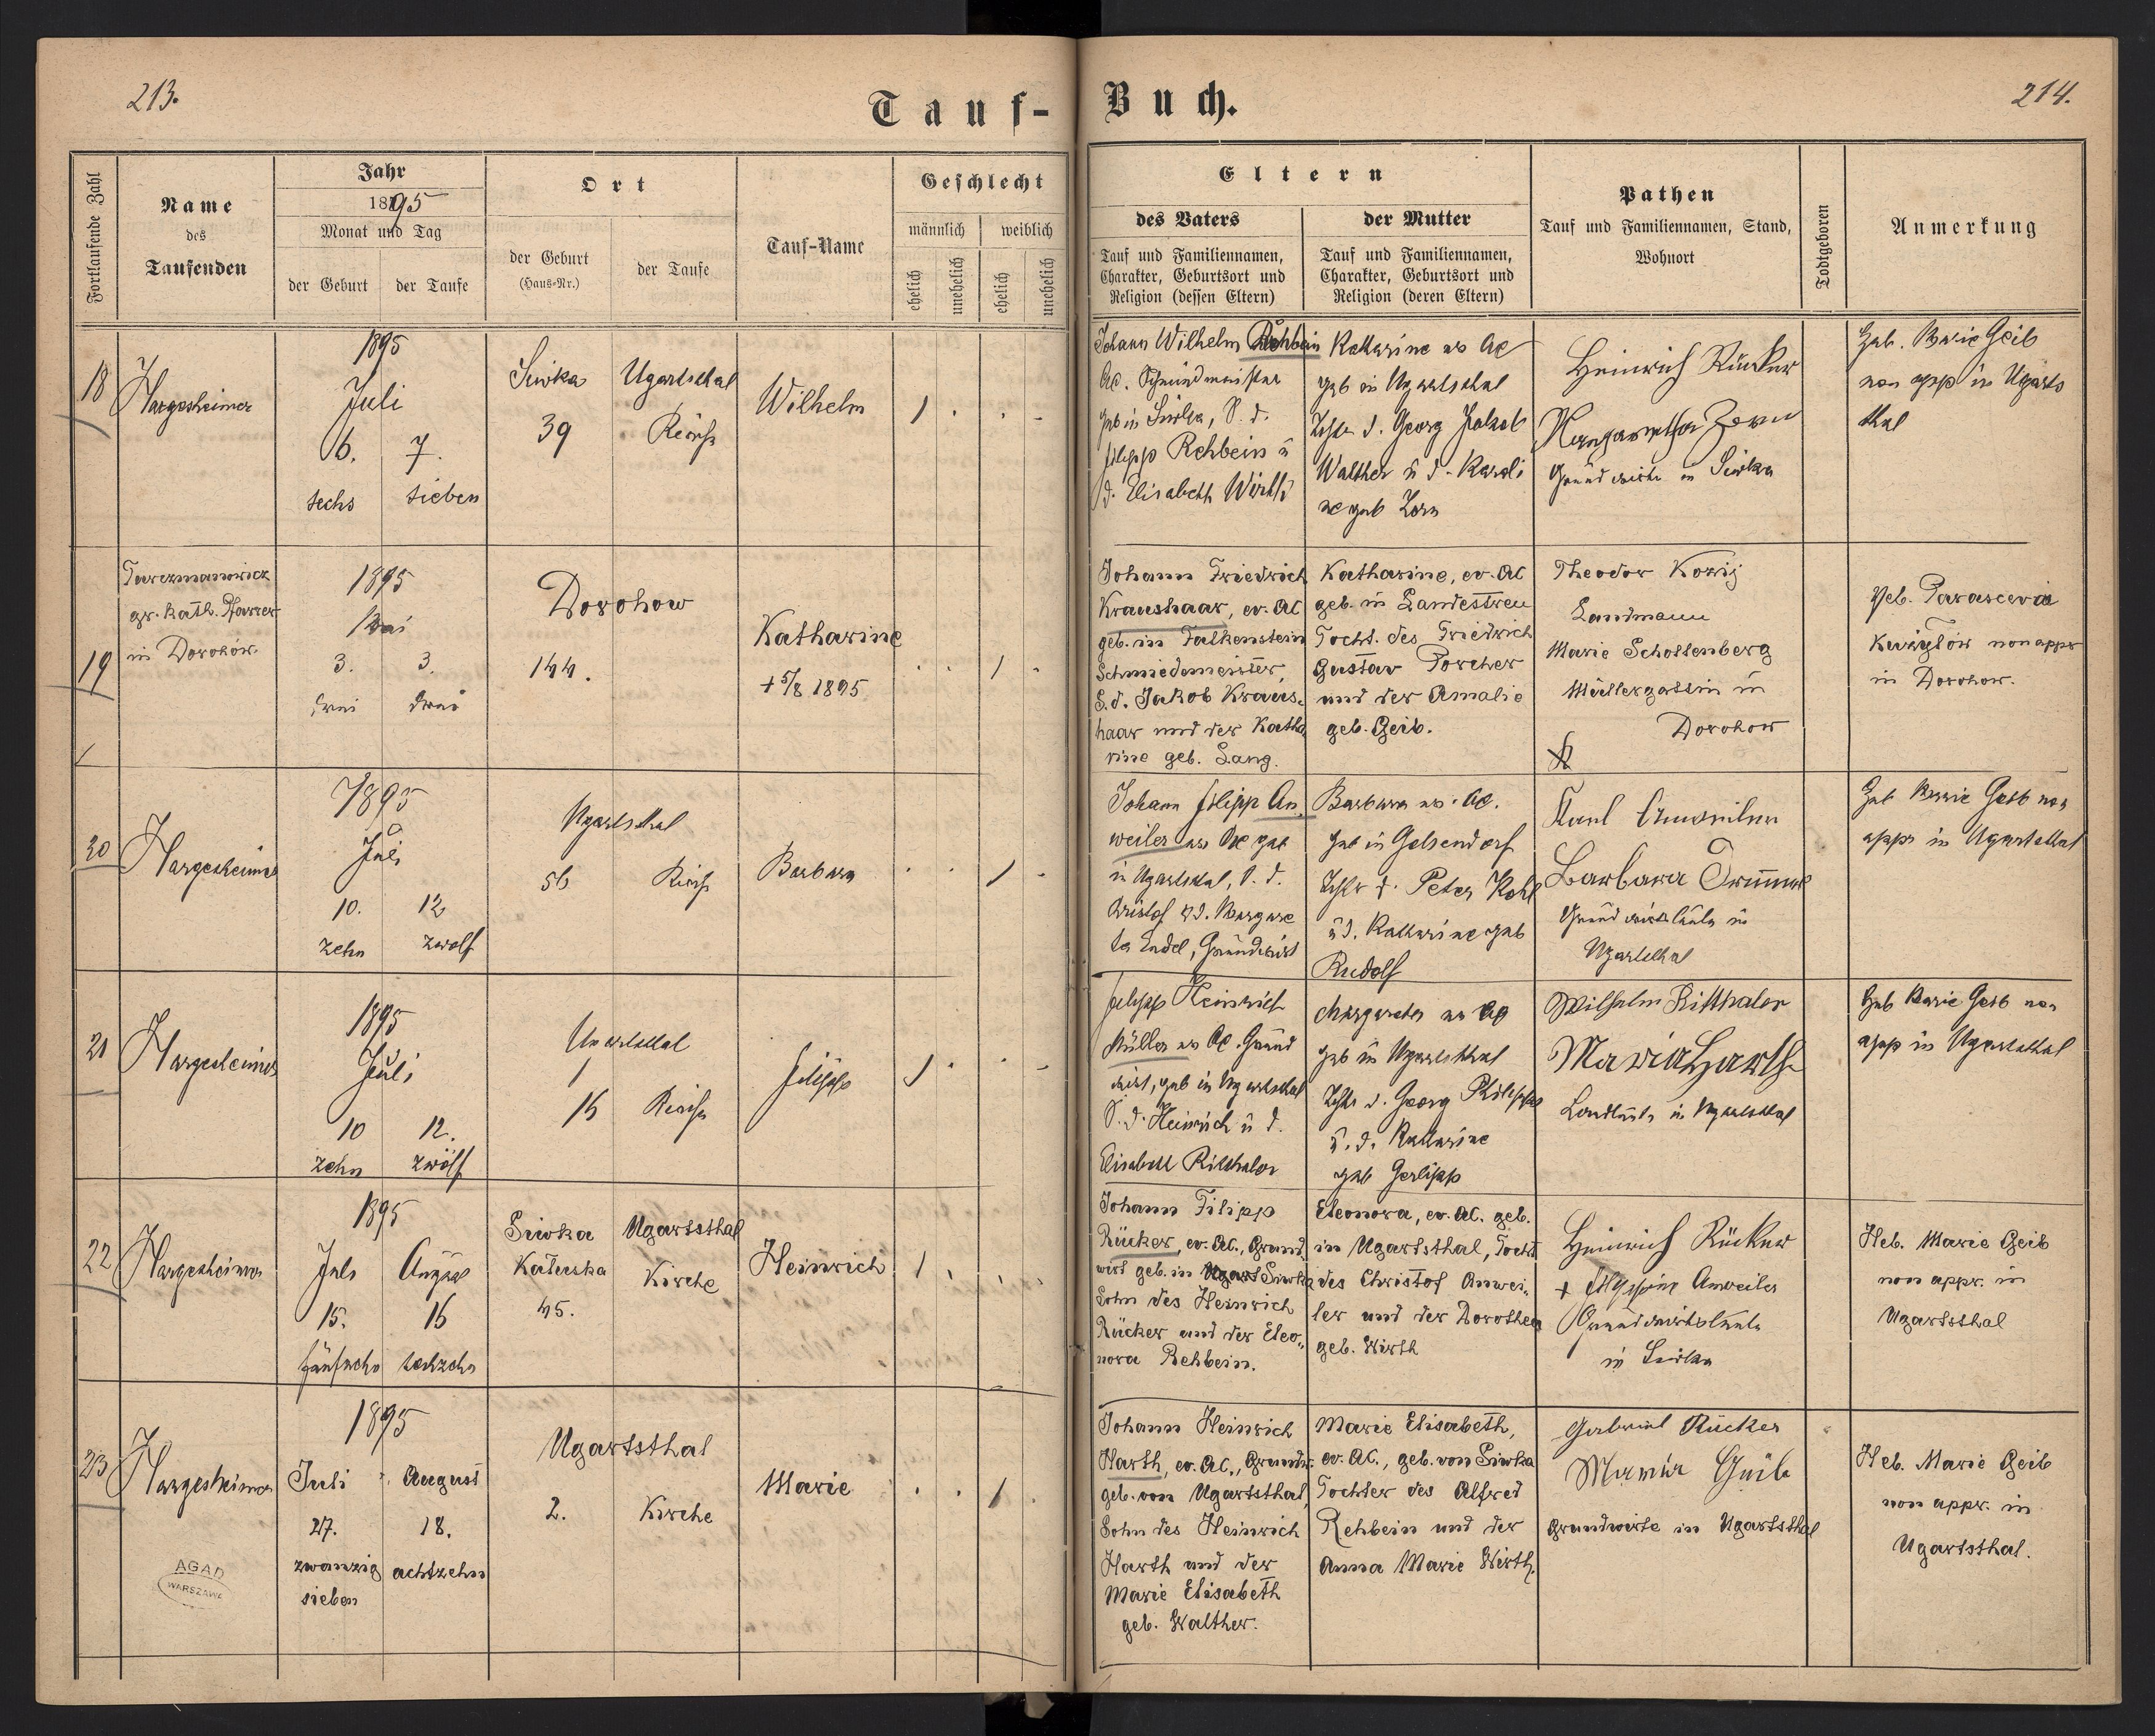 213.
Tauf-
Buch.
214.
Fortlaufende Zahl
Name
des
Taufenden
Jahr
1895
Monat und Tag
der Geburt
der Taufe
Ort
der Geburt
(Haus-Nr.)
der Taufe
Tauf-Name
Geschlecht
männlich
weiblich
ehelich
unehelich
ehelich
unehelich
Eltern
des Vaters
Tauf und Familiennamen,
Charakter, Geburtsort und
Religion (dessen Eltern)
der Mutter
Tauf und Familiennamen,
Charakter, Geburtsort und
Religion (deren Eltern)
Pathen
Tauf und Familiennamen, Stand,
Wohnort
Todtgeboren
Anmerkung
18
Hargesheimer
1895
Juli
6. 7.
sechs sieben
Siwka
39
Ugartsthal
Kirche
Wilhelm
Johann Wilhelm Rehbein
AC. Schmiedmeister
geb in Siwka, S. d.
Filipp Rehbein u
d. Elisabeth Wirth
Katharine ev AC
geb in Ugartsthal
Tochter d. Georg Jakob
Walther u d. Karoli
ne geb Zorn
Heinrich Rücker
Margaretha Zorn
Grundwirthe in Siwka
Heb. Marie Geib
non app in Ugarts
thal
19
Tarczmanowicz
gr. kath. Pfarrer
in Dorohów.
1895
Mai
3. 3.
drei drei
Dorohow
144.
Katharine
+ 5/8 1895
Johann Friedrich
Kraushaar, ev. AC
geb. in Falkenstein
Schmiedemeister,
S. d. Jakob Kraus-
haar und der Katha
rine geb. Lang.
Katharine, ev. AC
geb. in Landestreu
Tocht. des Friedrich
Gustav Porcher
und der Amalie
geb. Geib.
Theodor
Landmann
Marie Schottenberg
Müllergattin in
Dorohow
Heb. Parascevia
non appr
in Dorohow.
20
Hargesheimer
1895
Juli
10. 12
zehn zwölf
Ugartsthal
56
Kirche
Barbara
Johann Filipp An
weiler ev AC geb
in Ugartsthal, S. d.
Kristof u d. Margare
ta Endel, Grundwirt
Barbara ev. AC.
geb in Gelsendorf
Tochter d. Peter Kohl
u d. Katharine geb
Rudolf
Karl Anweiler
Barbara
Grundwirtsleute in
Ugartsthal
Heb Marie Geib non
appr in Ugartsthal
21
Hargesheimer
1895
Juli
10 12.
zehn zwölf
Ugartsthal
Kirche
Filipp
Filipp Heinrich
Müller ev AC. Grund
wirt, geb in Ugartsthal
S. d. Heinrich u d.
Elisabeth Ritthaler
Margareta ev AC
geb in Ugartsthal
Tochter d. Georg Philippi
u. d. Katharine
geb Gerlipp
Wilhelm Ritthaler
Maria Harth
Landleute in Ugartsthal
Heb Marie Geib non
app in Ugartsthal
22
Hargesheimer
1895
Juli August
15. 16
fünfzehn sechzehn
Siwka
Kaluska
45.
Ugartsthal
Kirche
Heinrich
Johann Filipp
Rücker, ev. AC., Grund
wirt geb. in Siwka
Sohn des Heinrich
Rücker und der Eleo-
nora Rehbein.
Eleonora, ev. AC. geb.
in Ugartsthal, Tocht
des Christof Anwei-
ler und der Dorothea
geb. Wirth
Heinrich Rücker
+ Filippine Anweiler
Grundwirtsleute
in Siwka
Heb. Marie Geib
non appr. in
Ugartsthal
23
Hargesheimer
1895
Juli August
27. 18.
zwanzig achtzehn
sieben
Ugartsthal
2.
Kirche
Marie
Johann Heinrich
Harth, ev. AC., Grundw.
geb. von Ugartsthal,
Sohn des Heinrich
Harth und der
Marie Elisabeth
geb. Walther.
Marie Elisabeth,
ev. AC., geb. von Siwka
Tochter des Alfred
Rehbein und der
Anna Marie Wirth.
Gabriel Rücker
Maria Geib
Grundwirte in Ugartsthal
Heb. Marie Geib
non appr. in
Ugartsthal.
AGAD
WARSZAWA